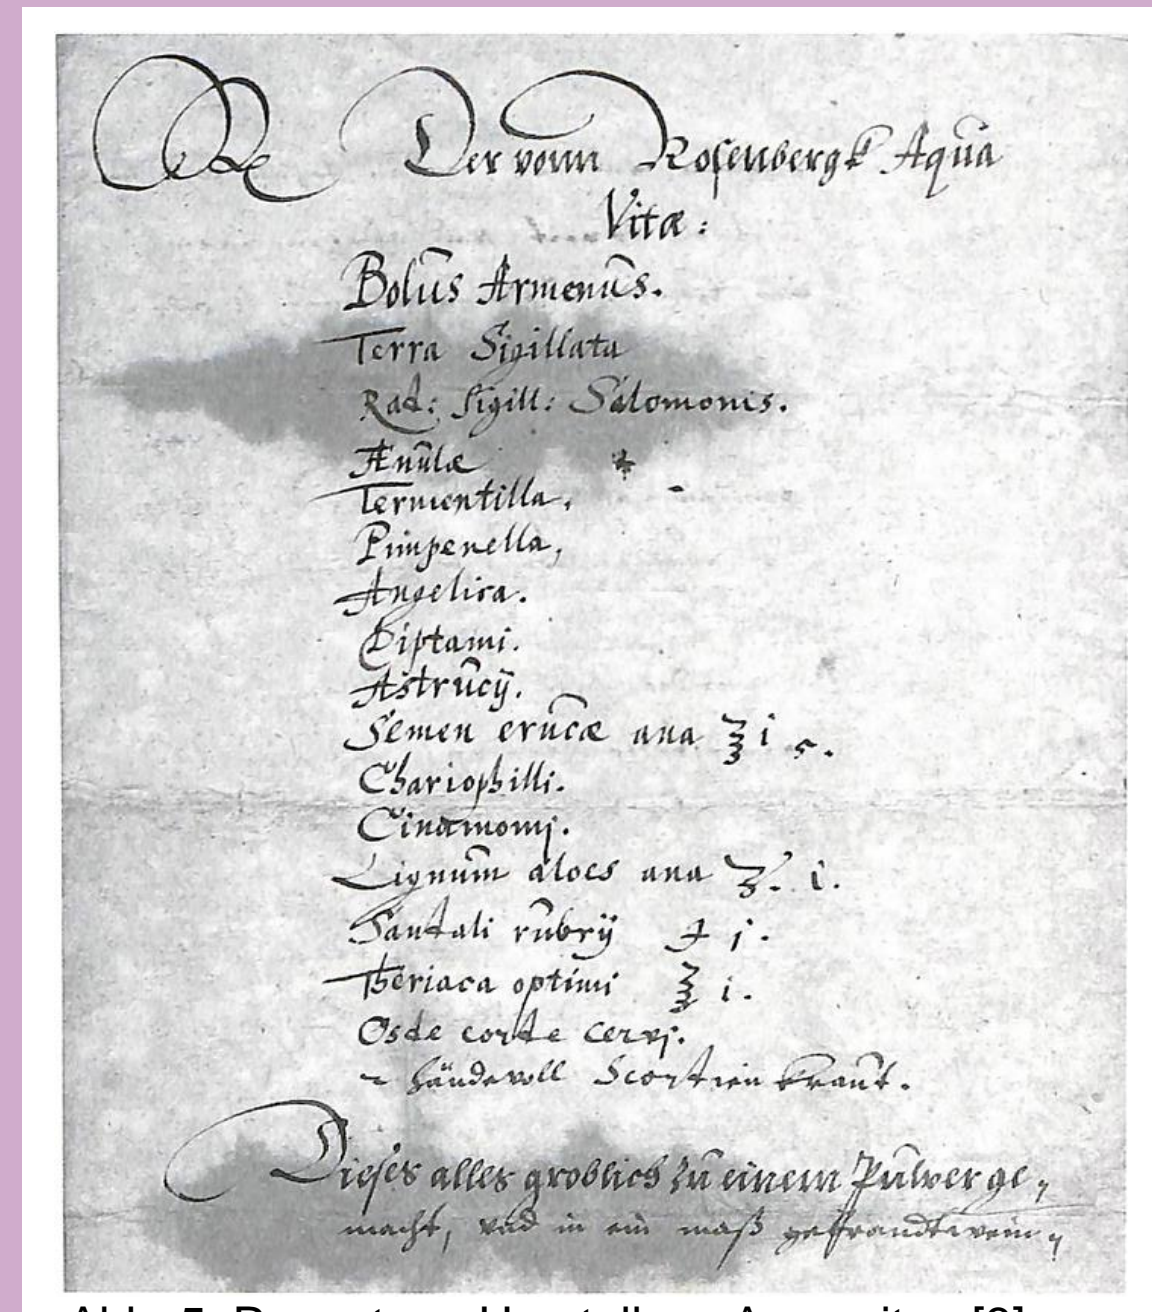 Rx Der vonn Rosenbergk Aqua
Vitæ:
Bolus Armenus.
Terra Sigillata
Rad: Sigill: Salomonis.
Anulæ
Termentilla,
Pimpenella,
Angelica.
Diptami.
Astrucÿ.
Semen erucæ ana ℥ i s.
Chariophilli.
Cinamomj.
Lignum aloes ana ʒ. i.
Santali rubrÿ j.
Theriaca optimi ℥ i.
Osde corde cervj.
händevoll kraut.
Dieses alles groblich zu einem Pulver ge„
macht, vnd in ein maß